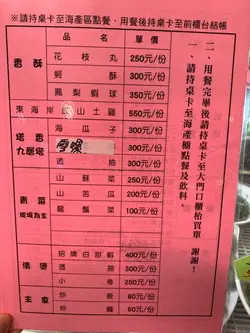 ※請持桌卡至海產區點餐,用餐後持桌卡至前櫃台結帳
品名 單價
香酥
花枝丸 250元/份
蚵酥 300元/份
鳳梨蝦球 350元/份
東海岸 山土雞 550元/份
塔香 九層塔
海瓜子 300元/份
300元/份
透抽 300元/份
青菜
山蘇菜 250元/份
山苦瓜 200元/份
龍鬚菜 100元/份
招牌白甜蝦 400元/份
透抽 300元/份
小卷 250元/份
主食
炒飯 60元/份
炒麵 60元/份
一、請持桌卡至海產櫃點餐及飲料。
二、用餐完畢後請持桌卡至大門口櫃枱買單 謝謝!